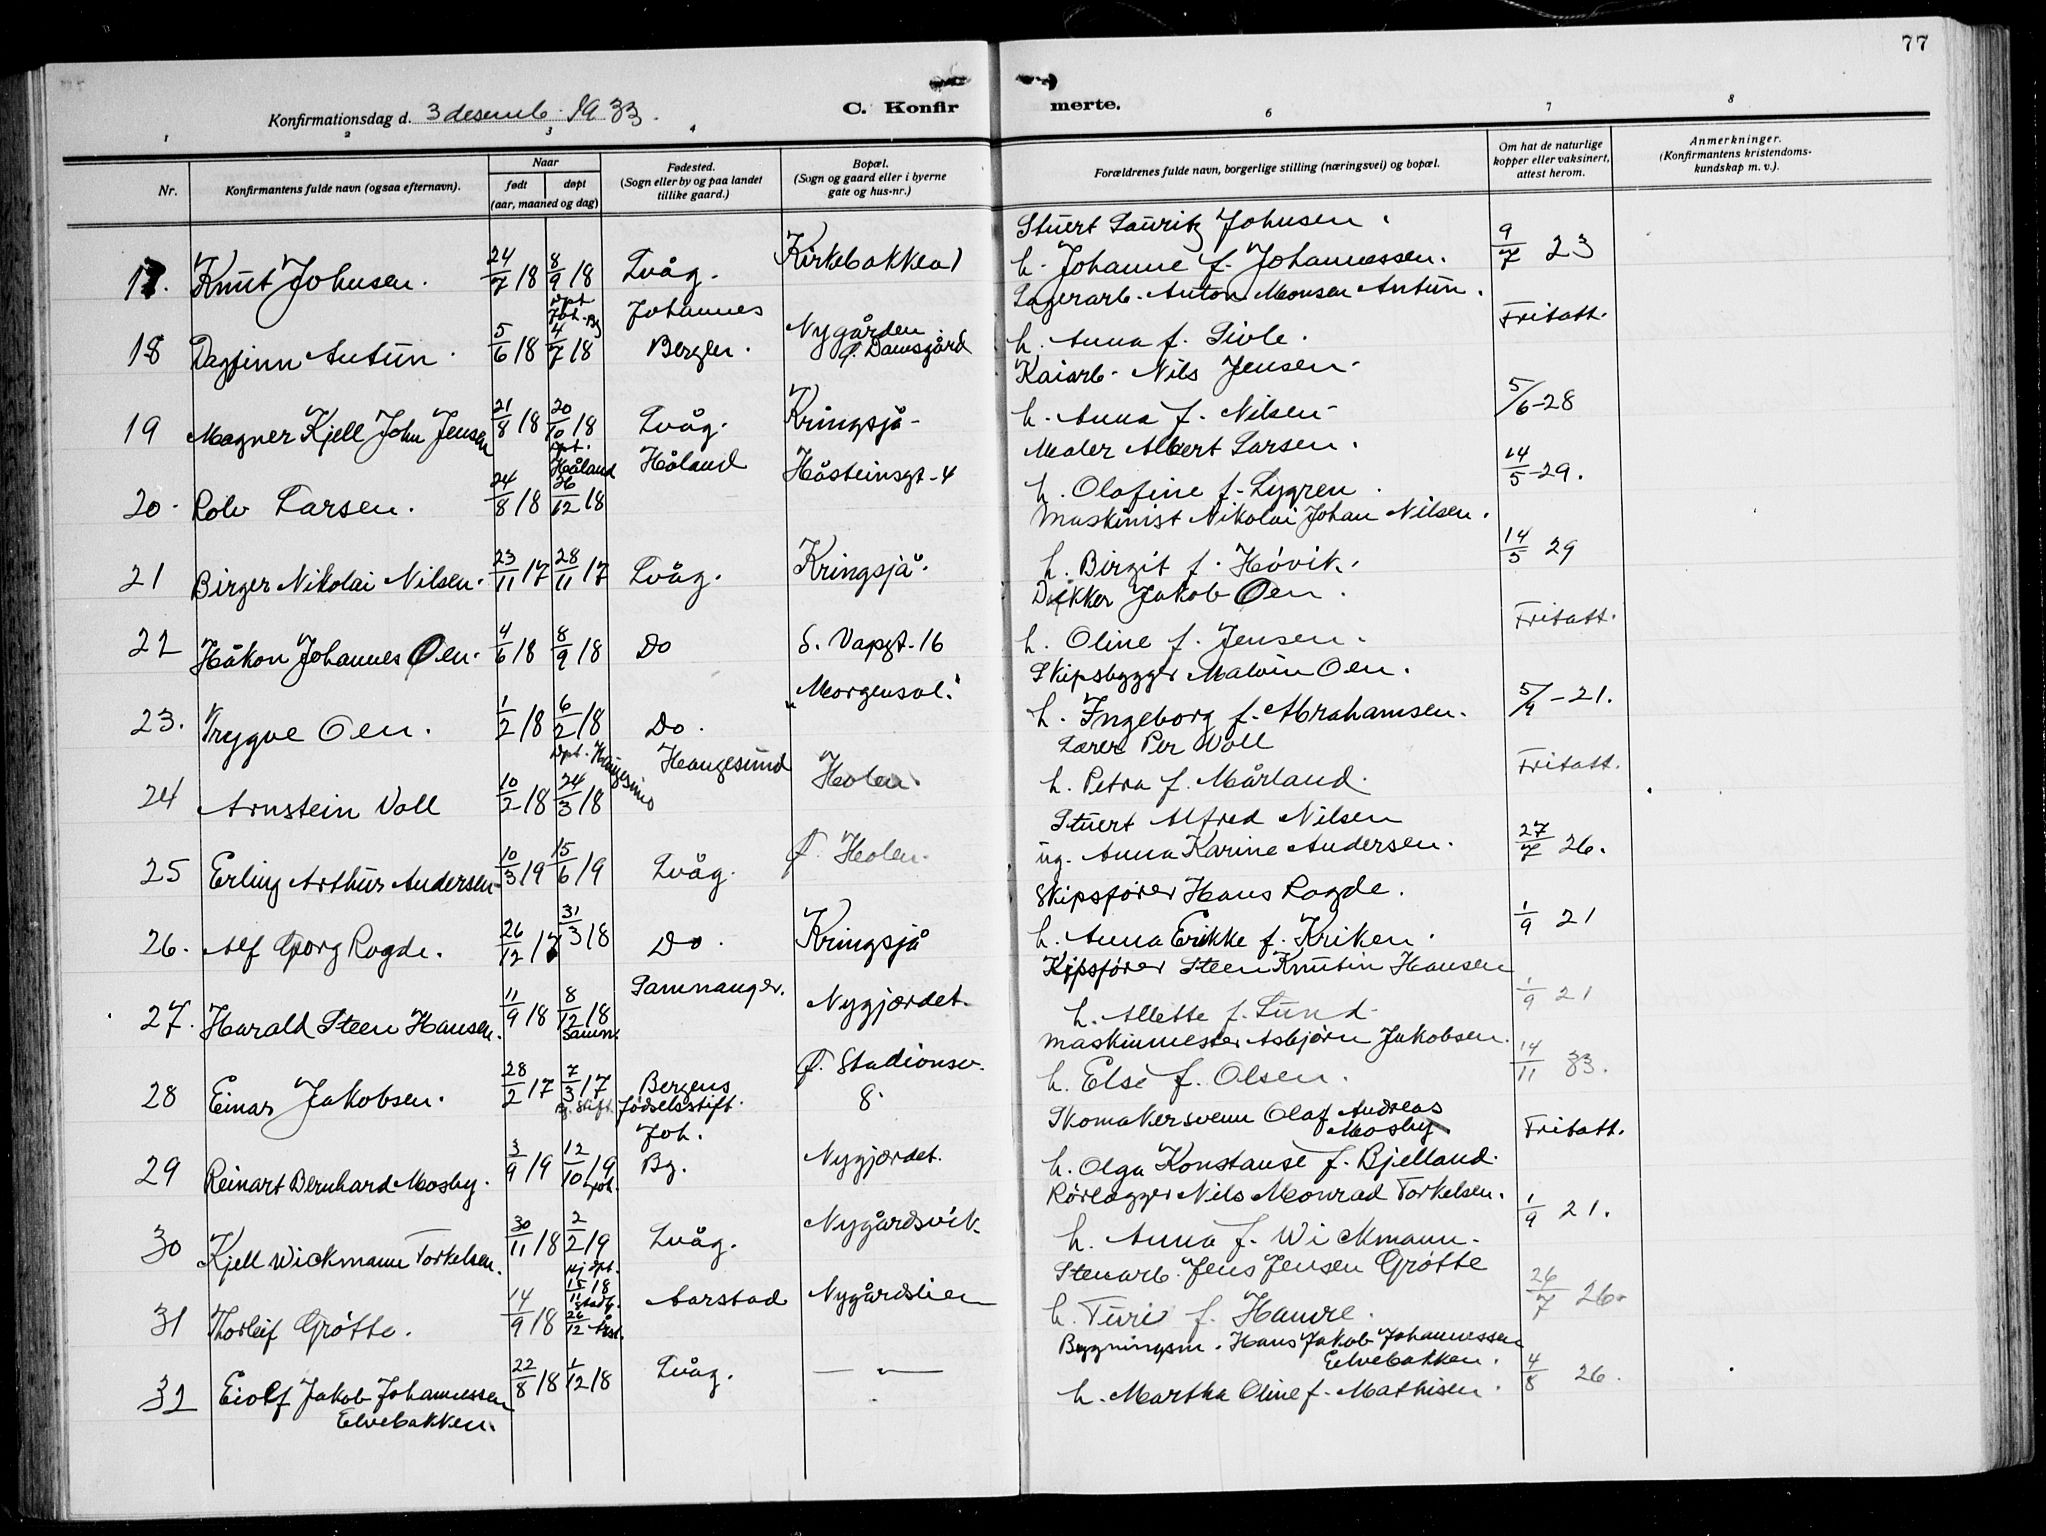 77
Konfirmationsdag d. 3 desemb. 1933.
C. Konfir merte.
1 2 3 4 6 7 8
Nr. Konfirmantens fulde navn (ogsaa efternavn). Naar født døpt (aar, maaned og dag) Fødested. (Sogn eller by og paa landet tillike gaard.) Bopæl. (Sogn og gaard eller i byerne gate og hus-nr.) Forældrenes fulde navn, borgerlige stilling (næringsvei) og bopæl. Om hat de naturlige kopper eller vaksinert, attest herom. Anmerkninger. (Konfirmantens kristendoms-kundskap m. v.).
Stuert Lauritz Johnsen.
17. Knut Johnsen. 24/7 18 8/9 18 Lvåg. Kirkebakken 1 h. Johanne f. Johannessen. 9/7 23
Dpt. Joh. Bg Johannes Lagerarb. Anton Monsen Antun.
18 Dagfinn Antun. 5/6 18 4/7 18 Bergen. Nygården Damsgård h. Anna f. Sivle. Fritatt.
Kaiarb. Nils Jensen.
19 Magner Kjell John Jensen 21/8 18 20/10 18 Lvåg. Kringsjå h. Anna f. Nilsen 5/6-28
Dpt. Håland Maler Albert Larsen.
20. Rolv Larsen. 24/8 18 26/12 18 Håland Håsteinsgt. 4 h. Olafine f. Lygren. 14/5-29.
Maskinist Nikolai Johan Nilsen.
21 Birger Nikolai Nilsen. 23/11 17 28/11 17 Lvåg. Kringsjå. h. Birgit f. Høvik. 14/5 29
Dekker Jakob Oen.
22 Håkon Johannes Oen. 4/6 18 8/9 18 Do S. Vapgt. 16 h. Oline f. Jensen. Fritatt.
Skipsbygger Malvin Oen.
23. Trygve Oen. 1/2 18 6/2 18 Do. "Morgensol." h. Ingeborg f. Abrahamsen. 5/9-21.
Dpt. Haugesund Lærer Per Voll
24 Arnstein Voll 10/2 18 24/3 18 Haugesund Holen. h. Petra f. Mårland. Fritatt.
Stuert Alfred Nilsen
25 Erling Arthur Andersen 10/3 19 15/6 19 Lvåg. Holen. ug. Anna Karine Andersen. 27/7 26.
Skipsfører Hans Rogde.
26. Alf Georg Rogde. 26/12 17 31/3 18 Do. Kringsjå h. Anna Erikke f. Kriken. 1/9 21
Skipsfører Steen Knutin Hansen
27. Harald Steen Hansen. 11/9 18 8/12 18 Samn. Samnanger. Nygjærdet. h. Allette f. Lund 1/9 21
Maskinmester Asbjørn Jakobsen.
28 Einar Jakobsen. 28/2 17 7/3 17 Bg. Stift. Bergens fødselsstift. Stadionsv. 8. h. Else f. Olsen. 14/11 33.
Skomakersvenn Olaf Andreas Mosby.
29 Reinart Bernhard Mosby. 3/9 19 12/10 19 Joh. Joh. Bg. Nygjærdet. h. Olga Konstanse f. Bjelland. Fritatt.
Rørlegger Nils Monrad Torkelsen.
30 Kjell Wickmann Torkelsen. 30/11 18 2/2 19 Lvåg. Nygårdsvik. h. Anna f. Wickmann. 1/9 21.
hj. dpt. Stenarb. Jens Jensen Grøtte
31 Thorleif Grøtte. 14/9 18 15/11 18 Stadf. 26/12 Årst. Aarstad Nygårdslien h. Turi f. Hamre. 26/7 26.
Bygningsm. Hans Jakob Johannessen Elvebakken.
32 Eiolf Jakob Johannessen Elvebakken. 22/8 18 1/12 18 Lvåg. — " — h. Martha Oline f. Mathisen. 4/8 26.